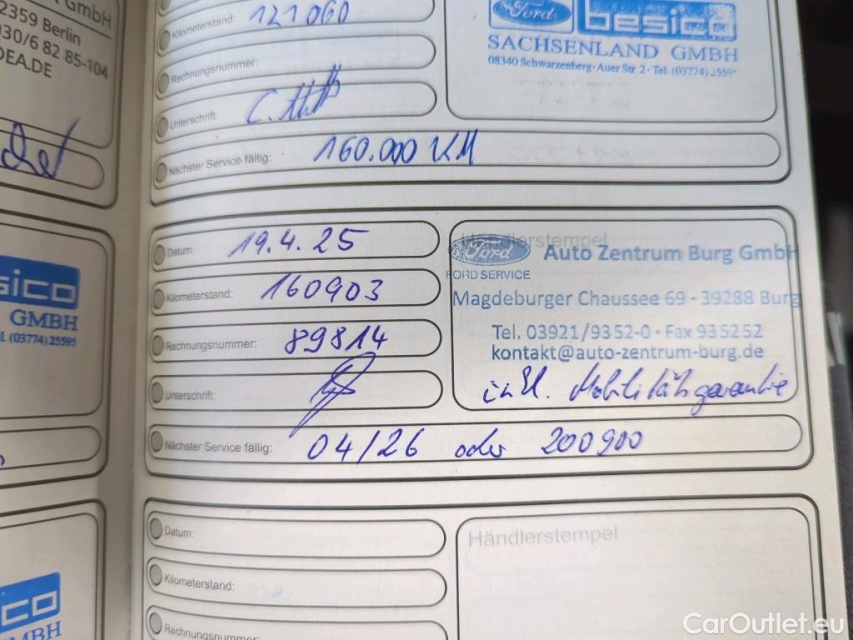 GmbH
2359 Berlin
030/6 82 85-104
DEA.DE
Kilometerstand: 121060
Rechnungsnummer:
Unterschrift:
Nächster Service fällig: 160.000 KM
Ford besico
SACHSENLAND GMBH
08340 Schwarzenberg · Auer Str. 2 · Tel. (03774) 2559
sico
GMBH
(03774) 25595
Datum: 19.4.25
Kilometerstand: 160903
Rechnungsnummer: 89814
Unterschrift:
Nächster Service fällig: 04/26 oder 200900
Händlerstempel
Ford Auto Zentrum Burg GmbH
FORD SERVICE
Magdeburger Chaussee 69 - 39288 Burg
Tel. 03921/9352-0 · Fax 935252
kontakt@auto-zentrum-burg.de
inkl. Mobilitätsgarantie
ico
MBH
Datum:
Kilometerstand:
Rechnungsnummer:
Händlerstempel
CarOutlet.eu